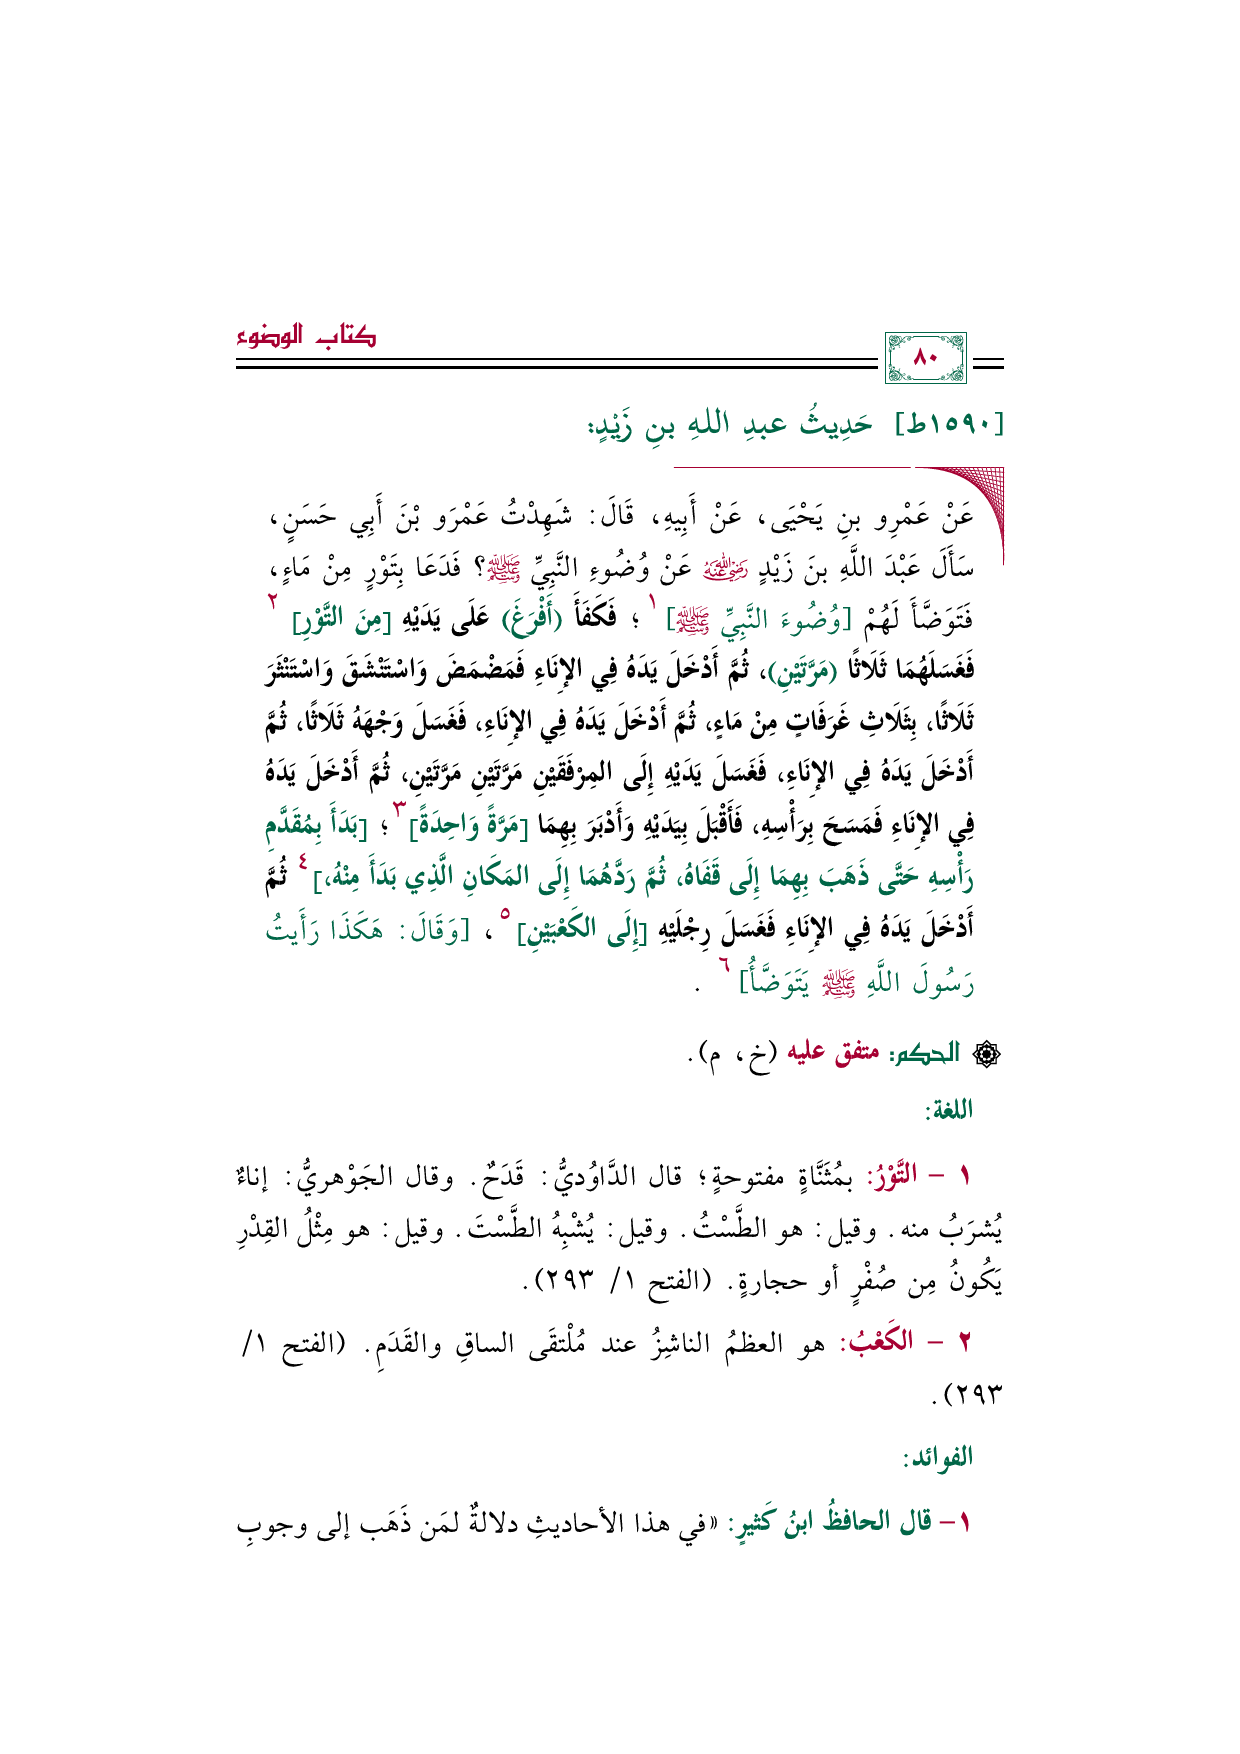 كتاب الوضوء
٨٠
[١٥٩٠ط] حَدِيثُ عبدِ اللهِ بنِ زَيْدٍ:
عَنْ عَمْرِو بنِ يَحْيَى، عَنْ أَبِيهِ، قَالَ: شَهِدْتُ عَمْرَو بْنَ أَبِي حَسَنٍ،
سَأَلَ عَبْدَ اللَّهِ بنَ زَيْدٍ رضي الله عنه عَنْ وُضُوءِ النَّبِيِّ ﷺ؟ فَدَعَا بِتَوْرٍ مِنْ مَاءٍ،
فَتَوَضَّأَ لَهُمْ [وُضُوءَ النَّبِيِّ ﷺ]١؛ فَكَفَأَ (أَفْرَغَ) عَلَى يَدَيْهِ [مِنَ التَّوْرِ]٢
فَغَسَلَهُمَا ثَلَاثًا (مَرَّتَيْنِ)، ثُمَّ أَدْخَلَ يَدَهُ فِي الإِنَاءِ فَمَضْمَضَ وَاسْتَنْشَقَ وَاسْتَنْثَرَ
ثَلَاثًا، بِثَلَاثِ غَرَفَاتٍ مِنْ مَاءٍ، ثُمَّ أَدْخَلَ يَدَهُ فِي الإِنَاءِ، فَغَسَلَ وَجْهَهُ ثَلَاثًا، ثُمَّ
أَدْخَلَ يَدَهُ فِي الإِنَاءِ، فَغَسَلَ يَدَيْهِ إِلَى المِرْفَقَيْنِ مَرَّتَيْنِ مَرَّتَيْنِ، ثُمَّ أَدْخَلَ يَدَهُ
فِي الإِنَاءِ فَمَسَحَ بِرَأْسِهِ، فَأَقْبَلَ بِيَدَيْهِ وَأَدْبَرَ بِهِمَا [مَرَّةً وَاحِدَةً]٣؛ [بَدَأَ بِمُقَدَّمِ
رَأْسِهِ حَتَّى ذَهَبَ بِهِمَا إِلَى قَفَاهُ، ثُمَّ رَدَّهُمَا إِلَى المَكَانِ الَّذِي بَدَأَ مِنْهُ،]٤ ثُمَّ
أَدْخَلَ يَدَهُ فِي الإِنَاءِ فَغَسَلَ رِجْلَيْهِ [إِلَى الكَعْبَيْنِ]٥، [وَقَالَ: هَكَذَا رَأَيتُ
رَسُولَ اللَّهِ ﷺ يَتَوَضَّأُ]٦.
الحكم: متفق عليه (خ، م).
اللغة:
١ – التَّوْرُ: بمُثَنَّاةٍ مفتوحةٍ؛ قال الدَّاوُديُّ: قَدَحٌ. وقال الجَوْهريُّ: إناءٌ
يُشرَبُ منه. وقيل: هو الطَّسْتُ. وقيل: يُشْبِهُ الطَّسْتَ. وقيل: هو مِثْلُ القِدْرِ
يَكُونُ مِن صُفْرٍ أو حجارةٍ. (الفتح ١/ ٢٩٣).
٢ – الكَعْبُ: هو العظمُ الناشِزُ عند مُلْتقَى الساقِ والقَدَمِ. (الفتح ١/
٢٩٣).
الفوائد:
١– قال الحافظُ ابنُ كَثيرٍ: «في هذا الأحاديثِ دلالةٌ لمَن ذَهَب إلى وجوبِ